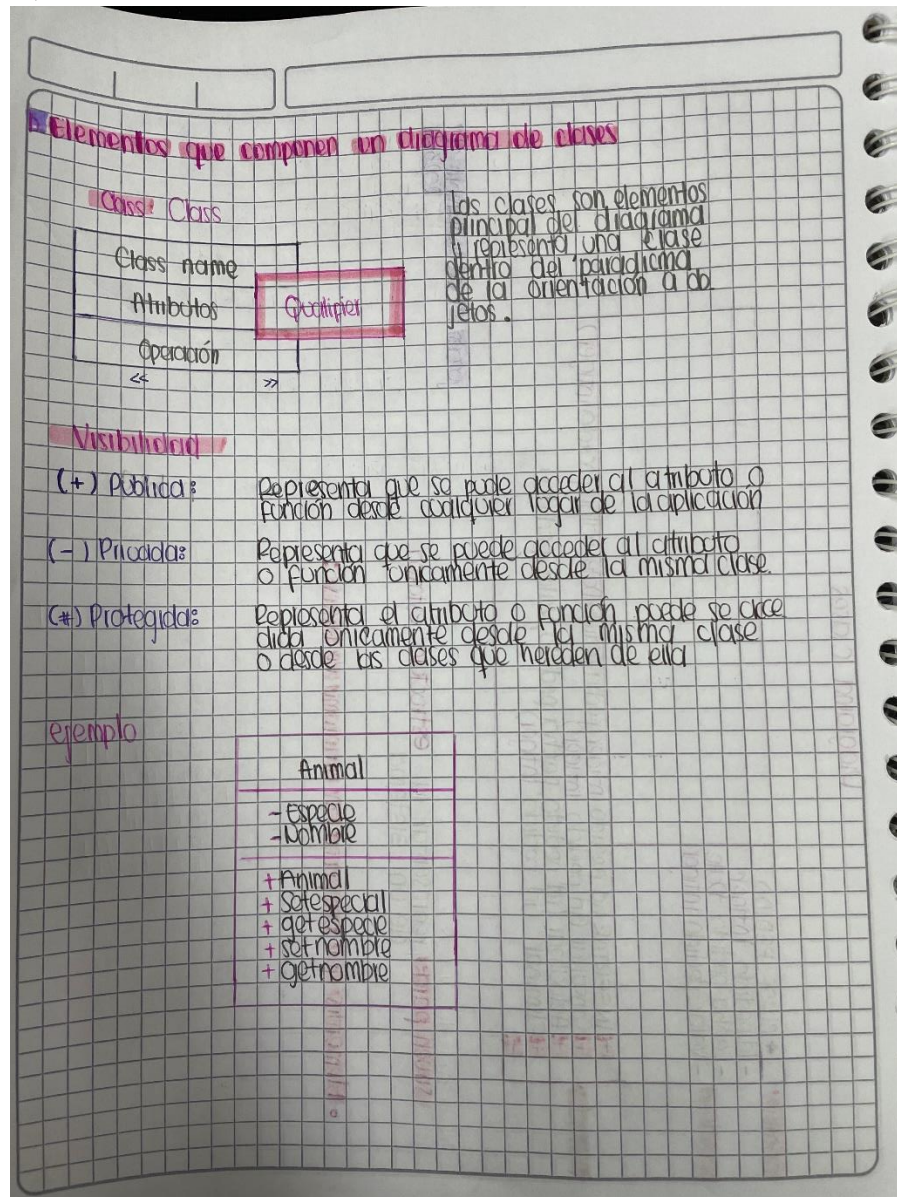 Elementos que componen un diagrama de clases
Class: Class
Class name
Atributos
Operación
<< >>
Qualifier
Las clases son elementos
principal del diagrama
y representa una clase
dentro del paradigma
de la orientación a ob
jetos.
Visibilidad
(+) Publica: Representa que se pude acceder al atributo o
función desde cualquier lugar de la aplicación
(-) Privada: Representa que se puede acceder al atributo
o función unicamente desde la misma clase.
(#) Protegida: Representa el atributo o función puede se acce
dida unicamente desde la misma clase
o desde las clases que hereden de ella
ejemplo
Animal
- Especie
- Nombre
+ Animal
+ Setespecial
+ getespecie
+ setnombre
+ getnombre